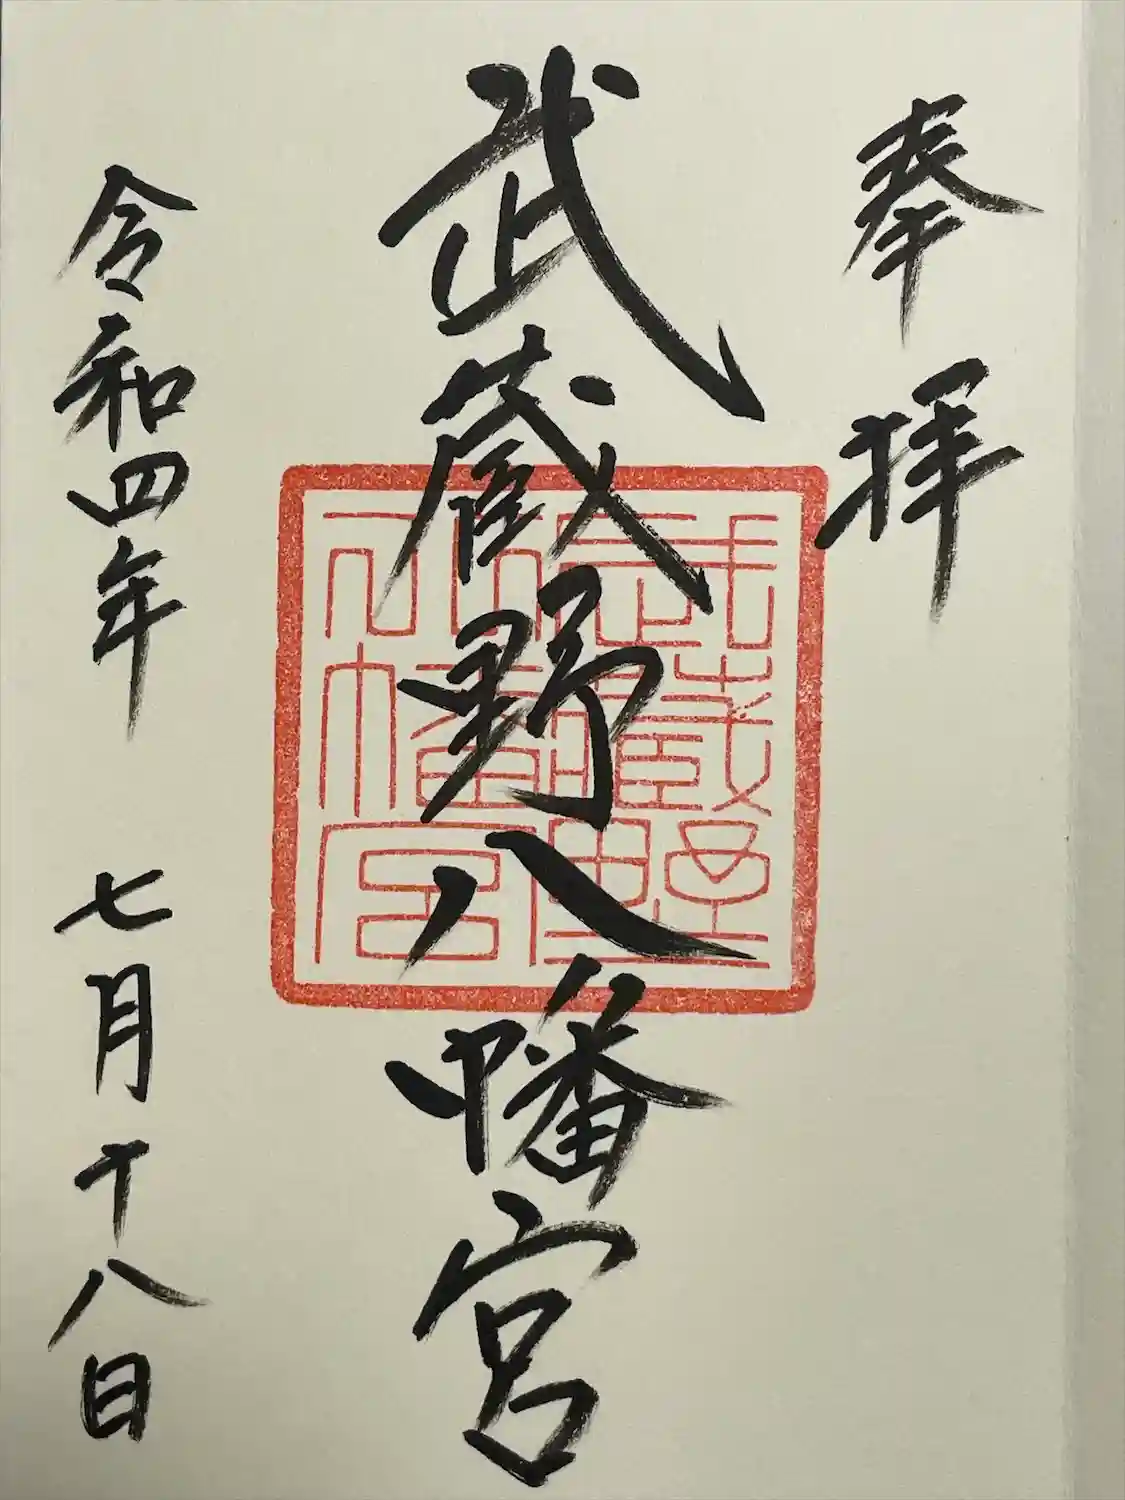 奉拝
武蔵野八幡宮
武蔵野
八幡宮
令和四年 七月十八日